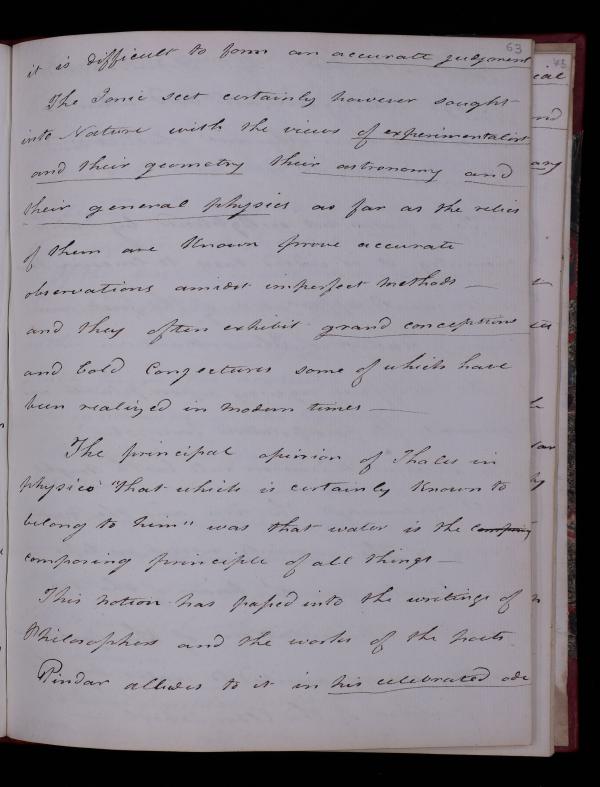 63
it is difficult to form an accurate judgment
The Ionic sect certainly however sought
into Nature with the views of experimentalist
and their geometry their astronomy and
their general physics as far as the relics
of them are known prove accurate
observations amidst imperfect methods —
and they often exhibit grand conceptions
and bold Conjectures some of which have
been realized in modern times —
The principal opinion of Thales in
physics "that which is certainly known to
belong to him" was that water is the
composing principle of all things —
This notion has passed into the writings of
Philosophers and the works of the poets
Pindar alludes to it in his celebrated ode